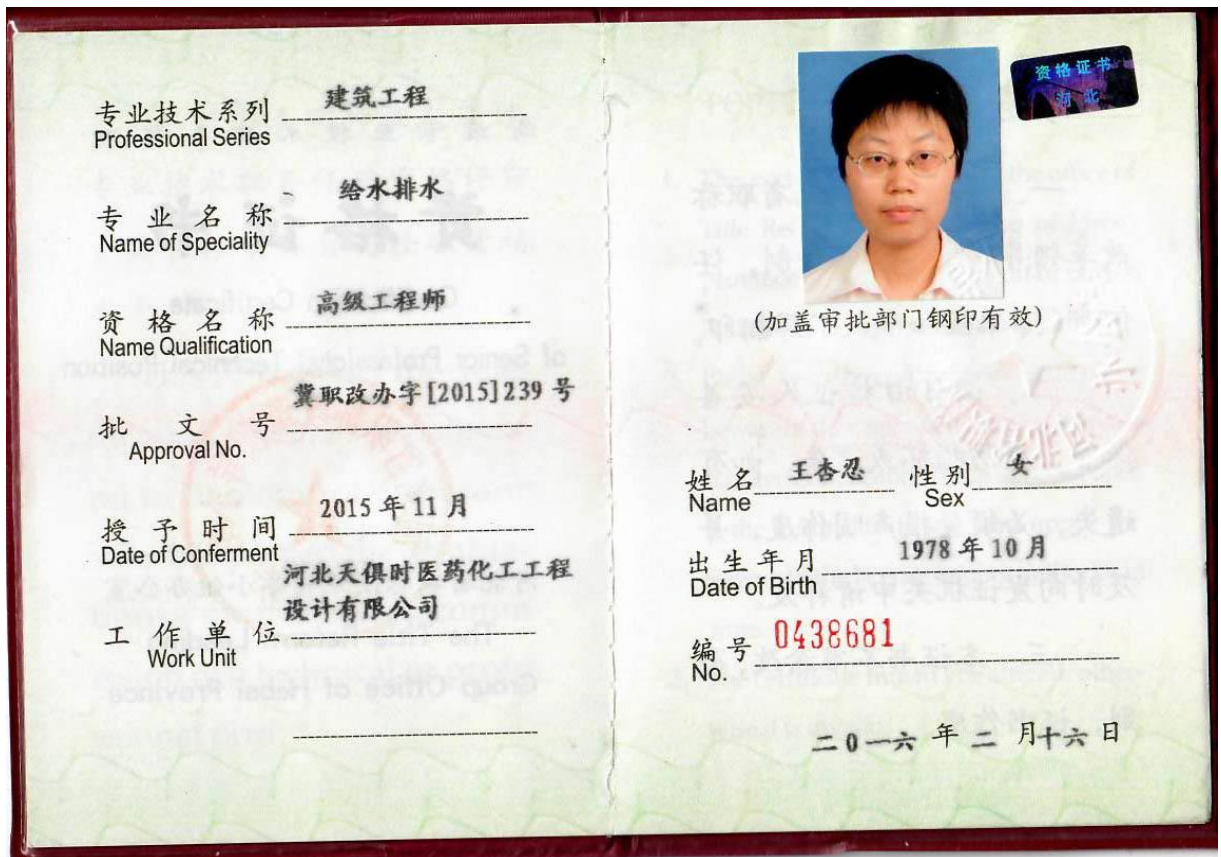 专业技术系列 建筑工程
Professional Series
专业名称 给水排水
Name of Speciality
资格名称 高级工程师
Name Qualification
批文号 冀职改办字[2015]239号
Approval No.
授予时间 2015年11月
Date of Conferment
河北天俱时医药化工工程
设计有限公司
工作单位
Work Unit
资格证书
河北
(加盖审批部门钢印有效)
姓名 王杏忍 性别 女
Name Sex
出生年月 1978年10月
Date of Birth
编号 0438681
No.
二0一六年二月十六日